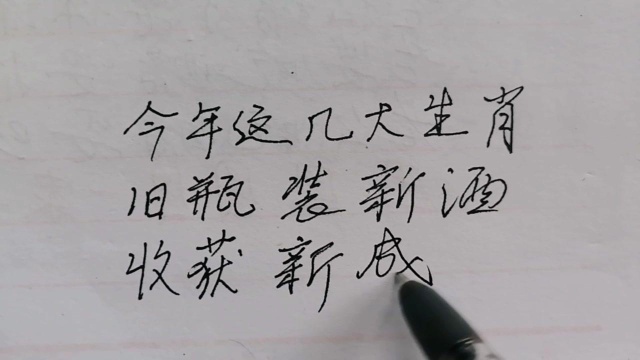 今年这几大生肖
旧瓶装新酒
收获新成